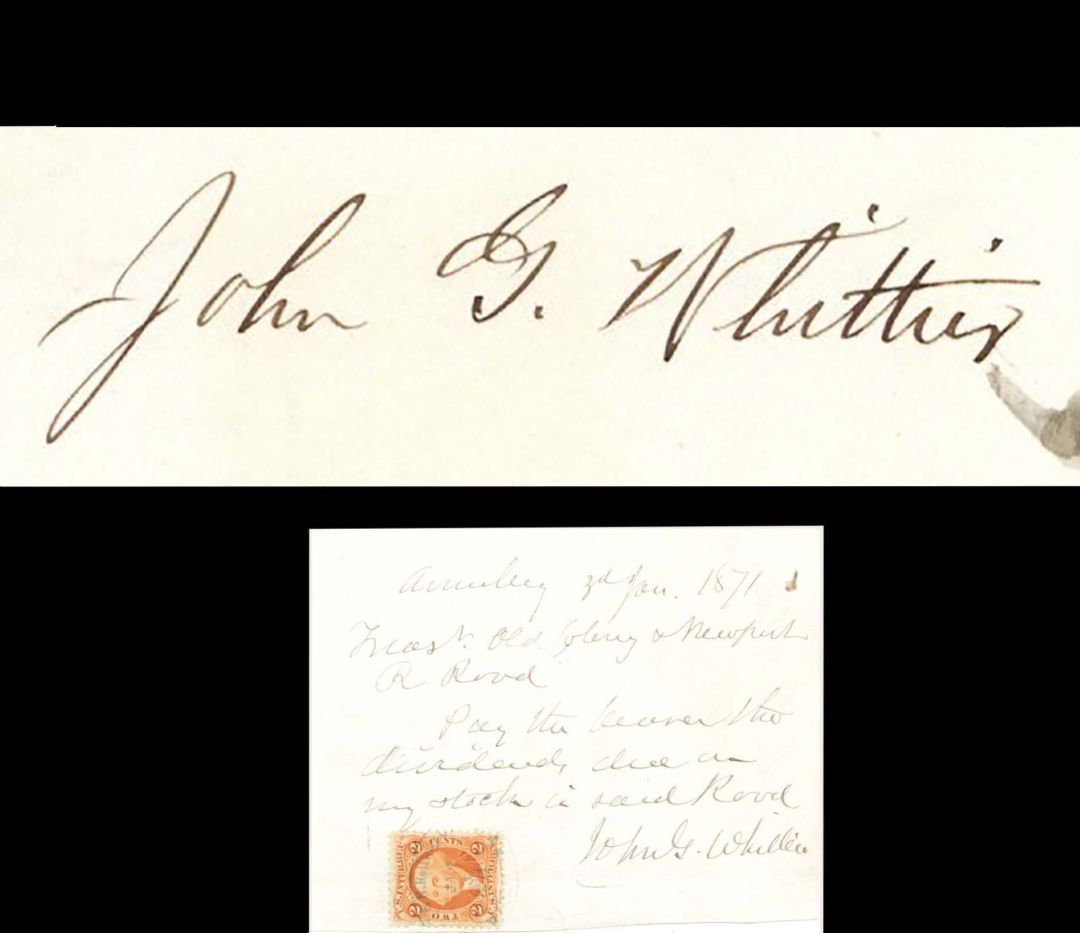 John G. Whittier
Amesbury 3d Jan. 1871
Treasr. Old Colony & Newport
R Road
Pay the bearer the
dividends due on
my stock in said Road
John G. Whittier
2 CENTS 2
U.S. INTER. REV.
2 TWO 2